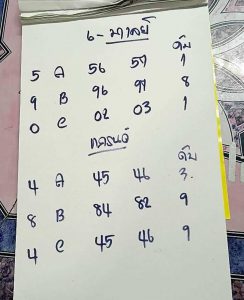 6- มาเลย์
ดับ
5 A 56 57 1
9 B 96 91 8
0 C 02 03 1
เทรนด์
ดับ
4 A 45 46 3.
8 B 84 82 9
4 C 45 46 9